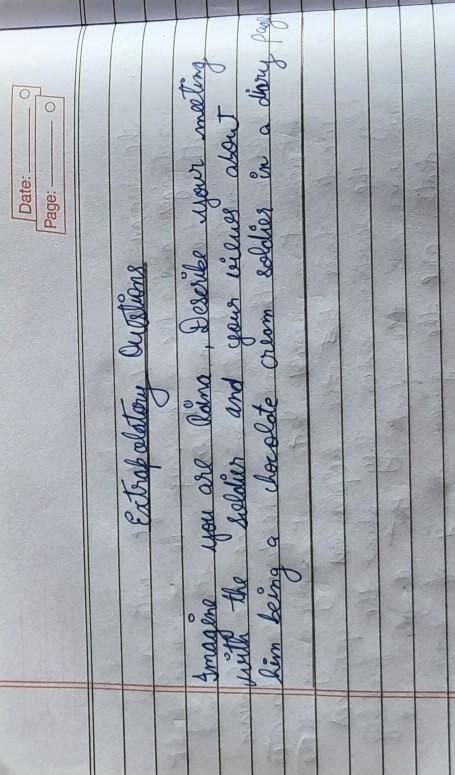 Date:
Page:
Extrapolatory Questions
Imagine you are Raina, Describe your meeting
with the soldier and your views about
him being a chocolate cream soldier in a diary page